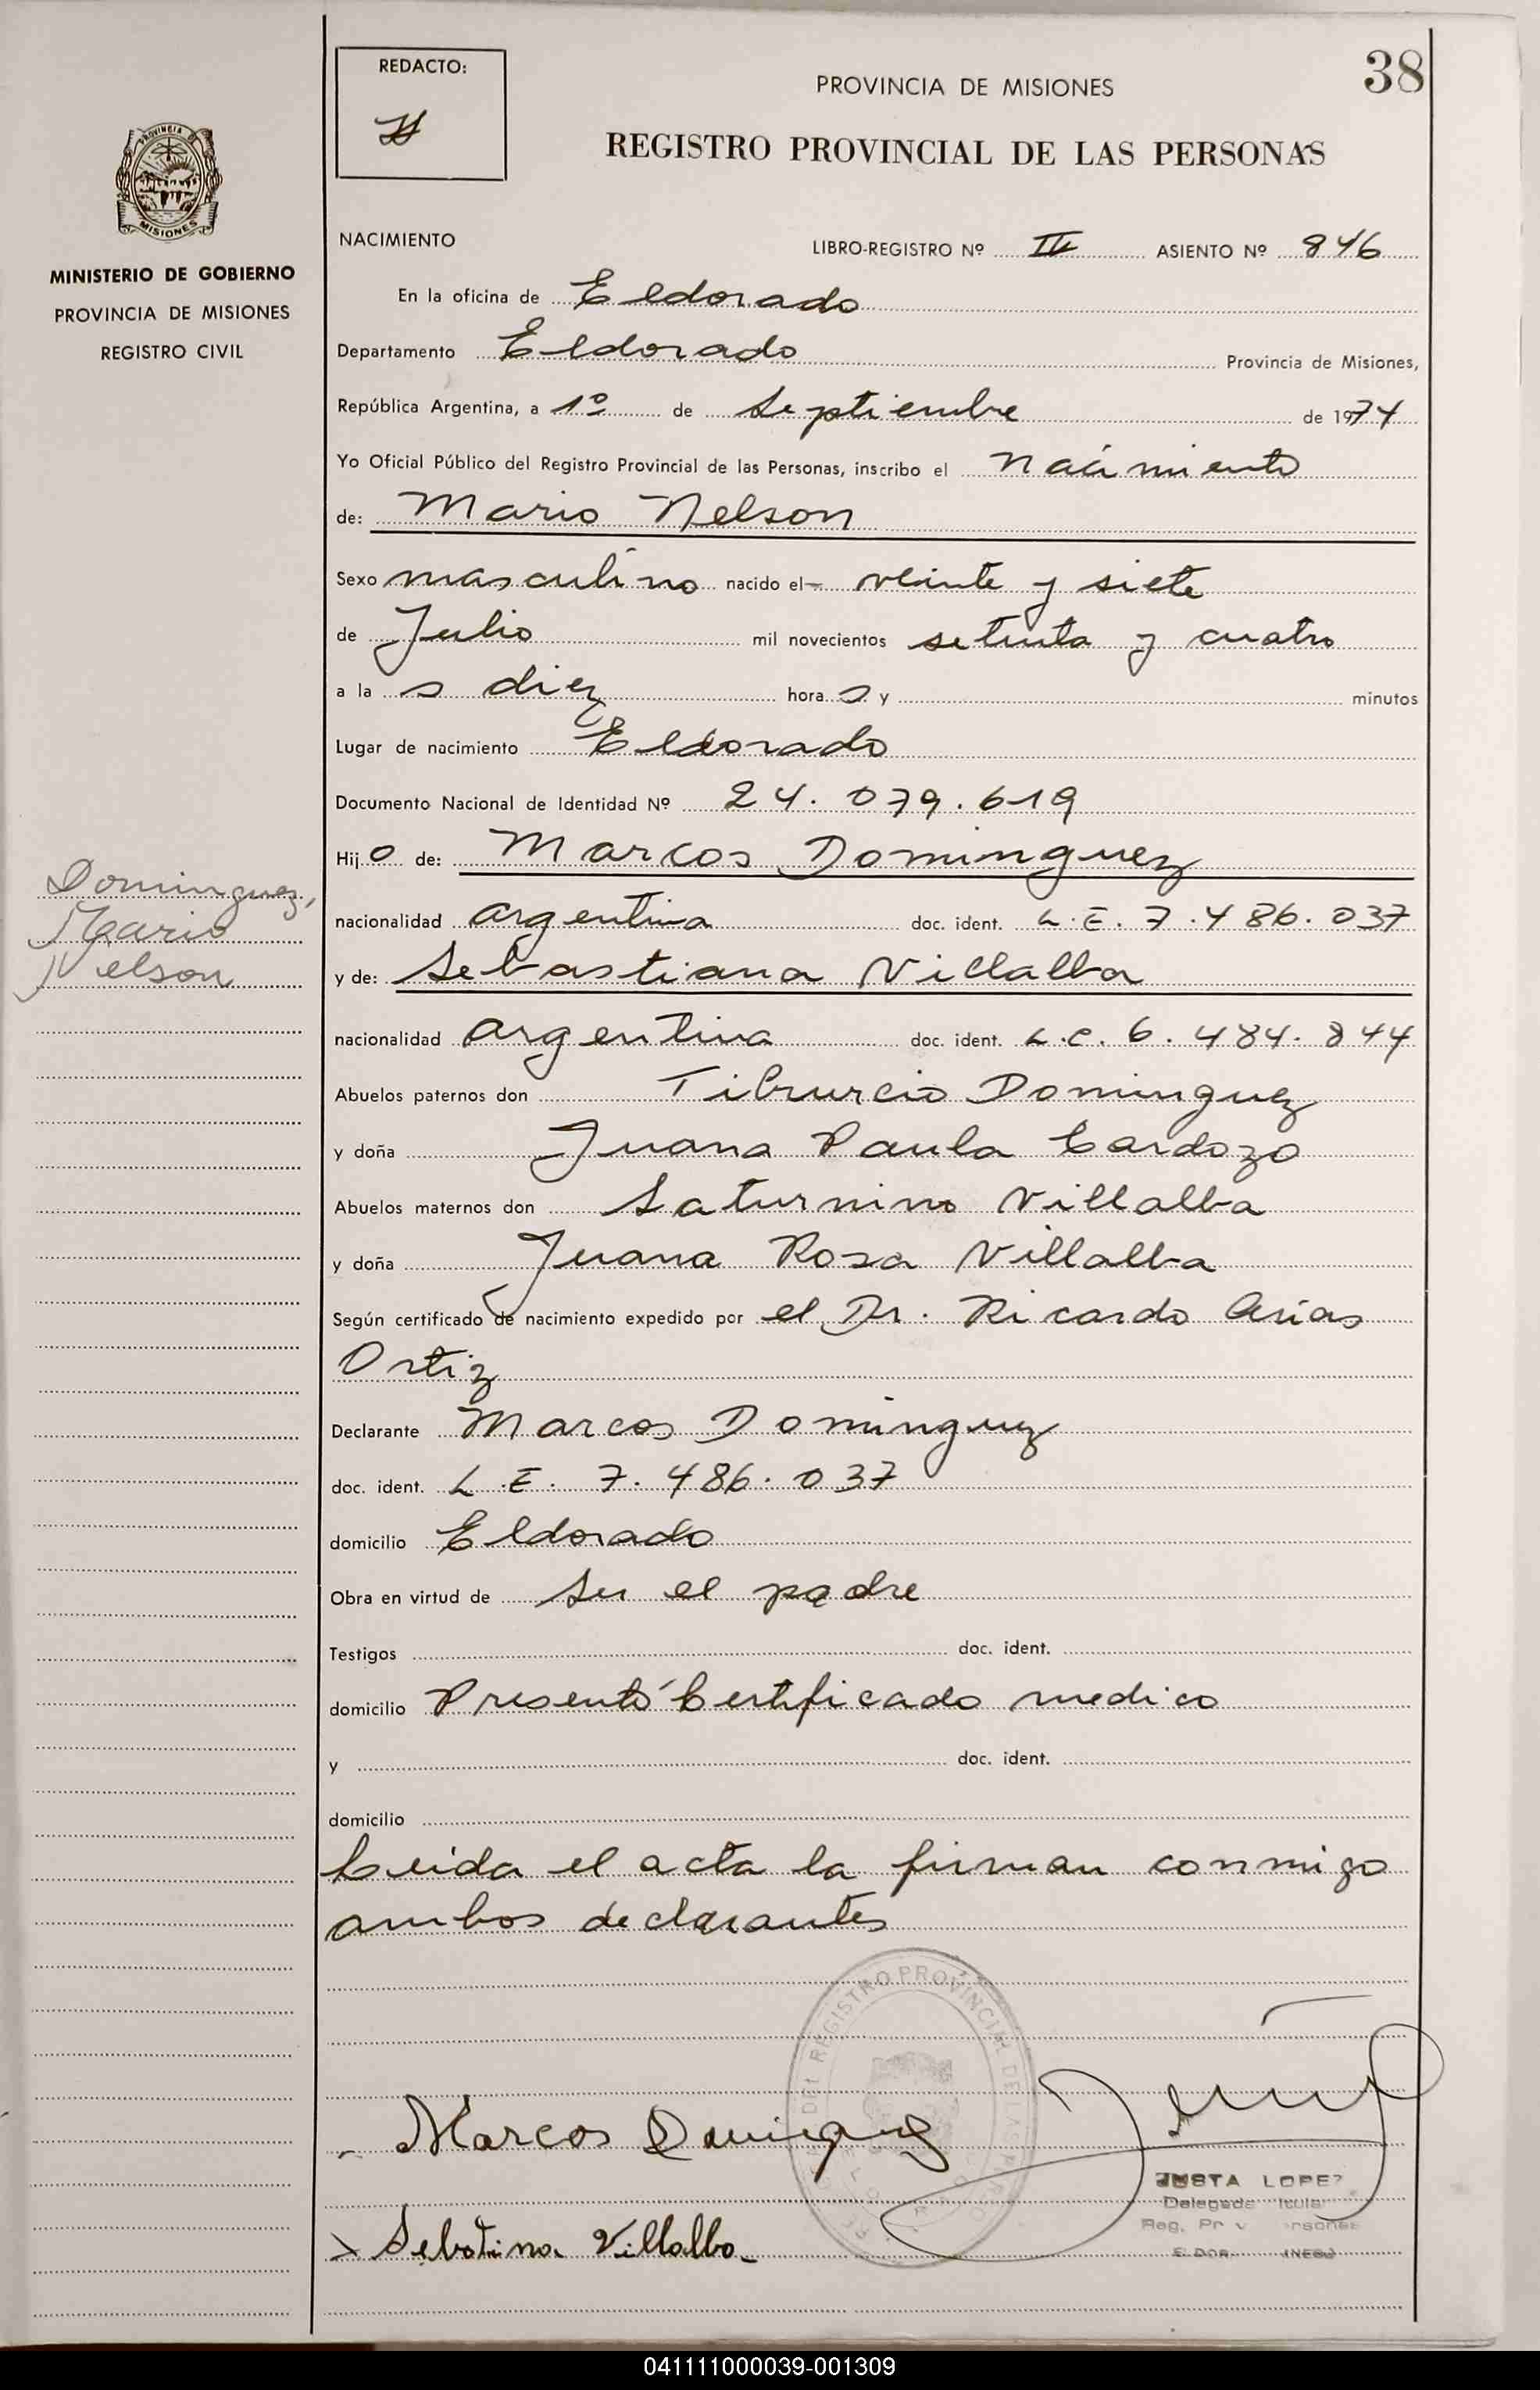 REDACTO:
PROVINCIA DE MISIONES
38
REGISTRO PROVINCIAL DE LAS PERSONAS
PROVINCIA DE
MISIONES
MINISTERIO DE GOBIERNO
PROVINCIA DE MISIONES
REGISTRO CIVIL
NACIMIENTO
LIBRO-REGISTRO Nº IV ASIENTO Nº 846
En la oficina de Eldorado
Departamento Eldorado Provincia de Misiones,
República Argentina, a 1º de Septiembre de 1974
Yo Oficial Público del Registro Provincial de las Personas, inscribo el nacimiento
de: Mario Nelson
Sexo masculino nacido el veinte y siete
de Julio mil novecientos setenta y cuatro
a la s diez hora s y minutos
Lugar de nacimiento Eldorado
Documento Nacional de Identidad Nº 24.079.619
Hijo de: Marcos Dominguez
Dominguez,
Mario
Nelson
nacionalidad argentina doc. ident. L.E. 7.486.037
y de: Sebastiana Villalba
nacionalidad argentina doc. ident. L.C. 6.484.844
Abuelos paternos don Tibrurcio Dominguez
y doña Juana Paula Cardozo
Abuelos maternos don Saturnino Villalba
y doña Juana Rosa Villalba
Según certificado de nacimiento expedido por el Dr. Ricardo Arias
Ortiz
Declarante Marcos Dominguez
doc. ident. L.E. 7.486.037
domicilio Eldorado
Obra en virtud de ser el padre
Testigos doc. ident.
domicilio Presentó Certificado medico
y doc. ident.
domicilio
Leida el acta la firman conmigo
ambos declarantes
REGISTRO PROVINCIAL DE LAS
Marcos Dominguez
JUSTA LOPEZ
Delegada
Reg.
Sebatina Villalba
041111000039-001309